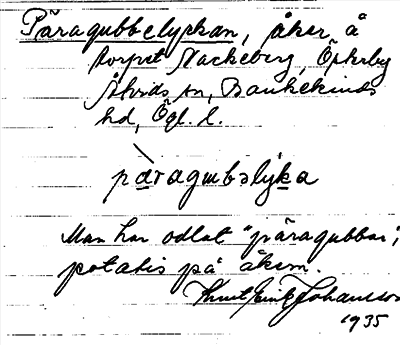 Päragubbelyckan, åker å
torpet Nackeberg, Öjkerby
Åtvids sn, Bankekinds
hd, Ögl. l.
pàragubəlyka
Man har odlat "päragubbar",
potatis på åkern.
Knut Erik Johansson
1935